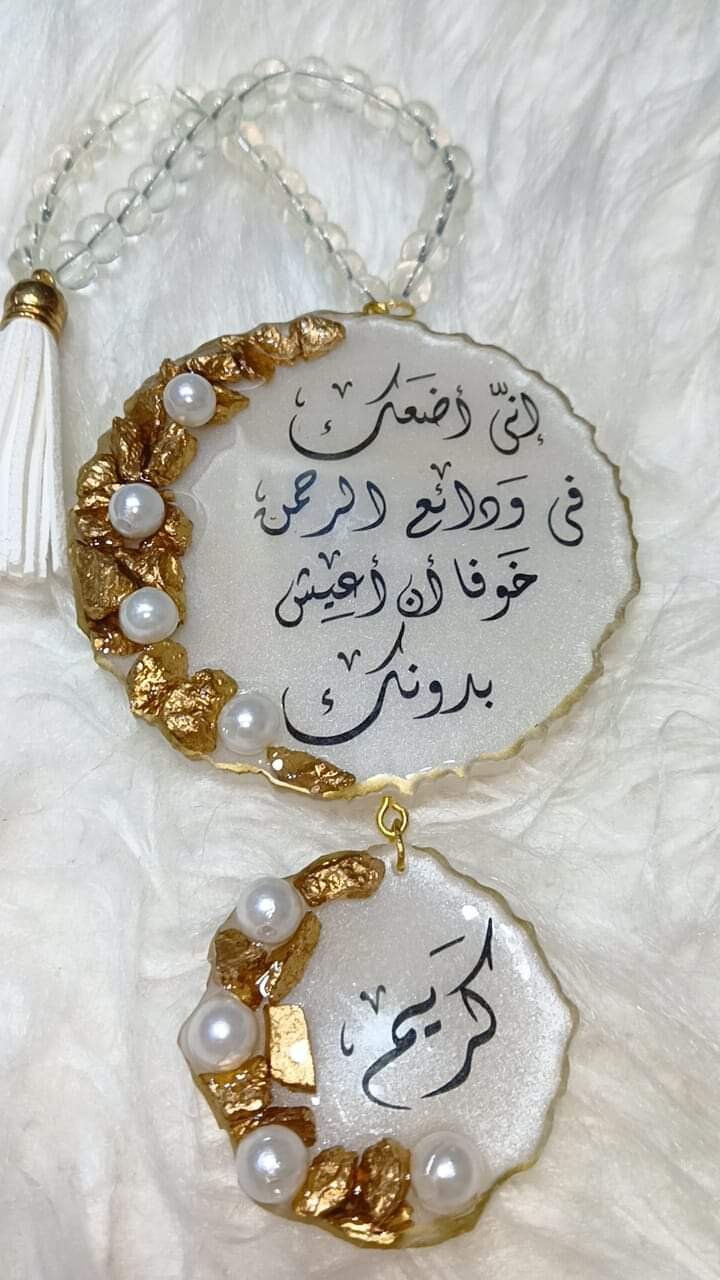 إنّي أضعَك
في وَدائع الرحمن
خَوفا أن أعِيش
بدونك
كَريم